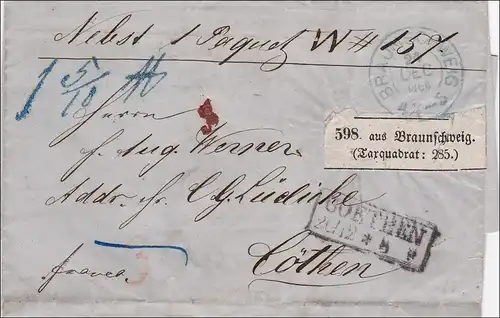 Nebst 1 Paquet W # 157.
1 5/10
BRAUNSCHWEIG
DEC
Herrn
598. aus Braunschweig.
(Taxquadrat: 285.)
f. Aug. Werner
Addr. C. G. Lüdicke
COETHEN
franco.
Cöthen